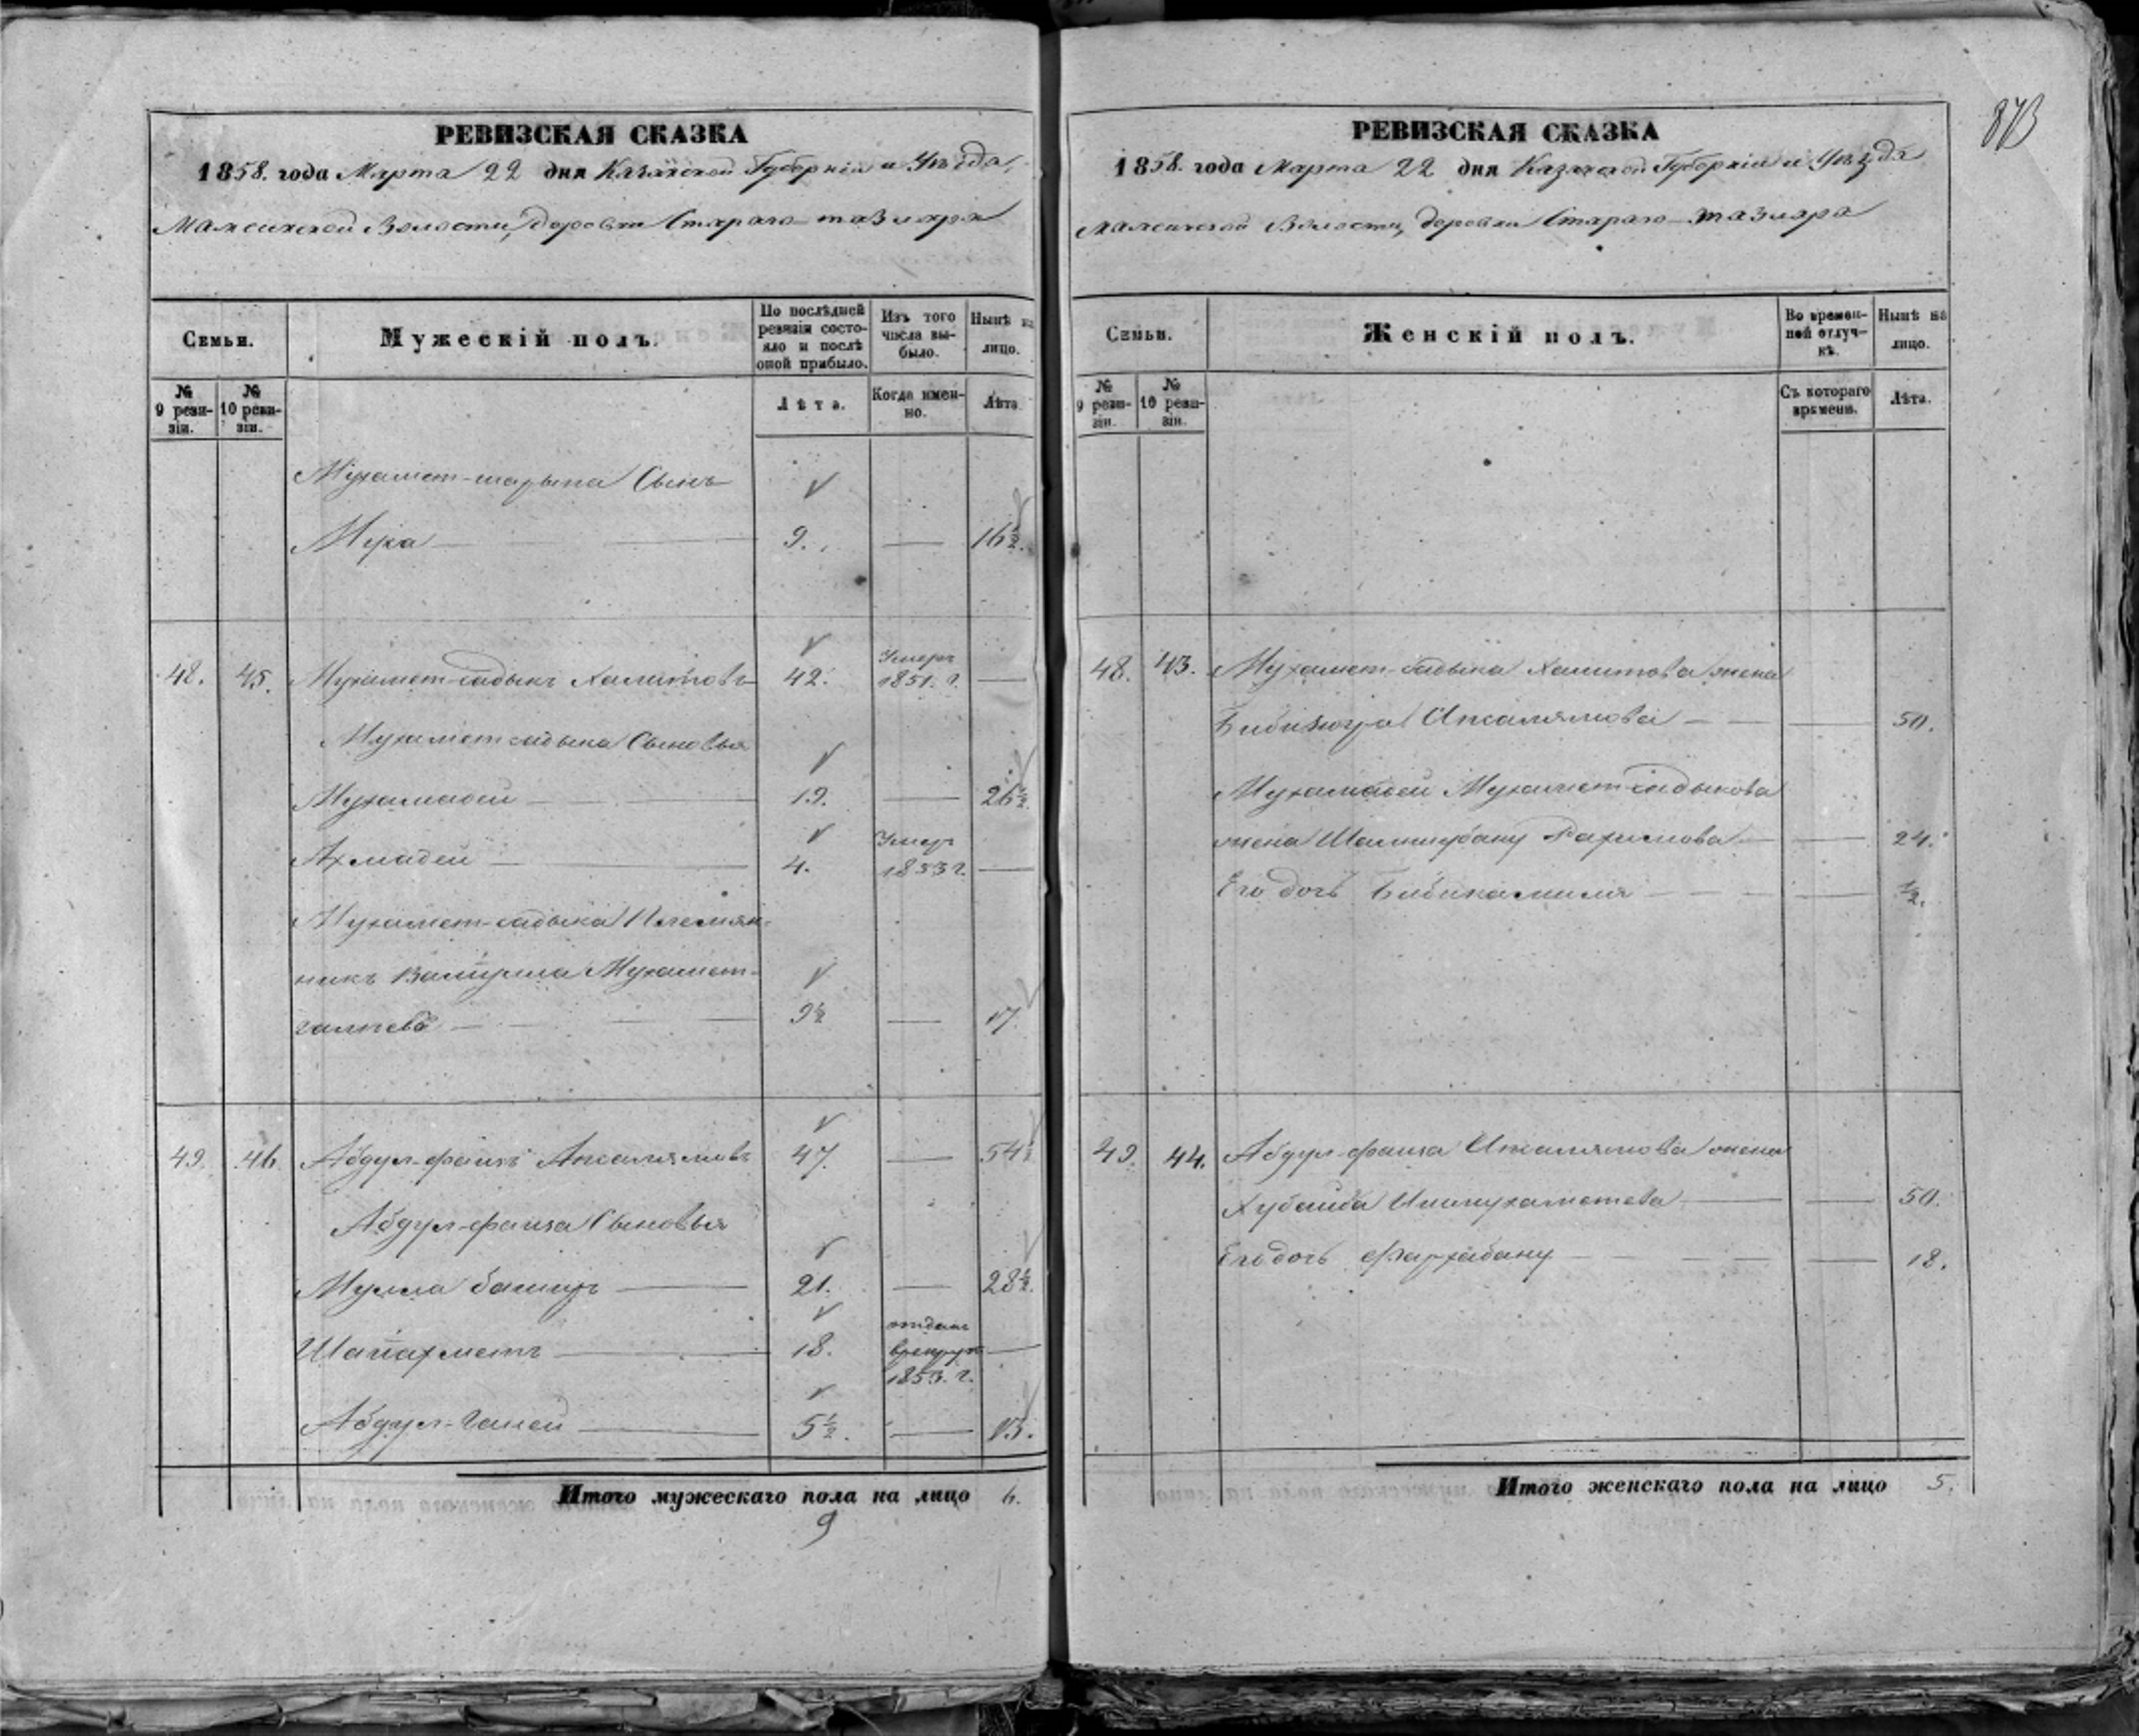 873
РЕВИЗСКАЯ СКАЗКА
1858. года Марта 22 дня Казанской Губерніи и Уѣзда,
Волости, деревни Стараго
Семьи.
Мужескій полъ.
По послѣдней ревизіи состояло и послѣ оной прибыло.
Изъ того числа выбыло.
Нынѣ на лицо.
№ 9 ревизіи.
№ 10 ревизіи.
Лѣта.
Когда именно.
Лѣта
Мухамет-шарыпа Сынъ
Муха 9. 16½.
48. 45. Мухамет-садыкъ Халитовъ 42. Умеръ 1851. г.
Мухамет садыка Сыновья
Мухамадей 19. 26½.
Ахмадей 4. Умеръ 1853 г.
Мухамет-садыка Племян-
никъ Мухамет-
галиевъ 9½ 17.
49. 46. Абдул-фаизъ 47. 54½
Абдул-фаиза Сыновья
Мулла башир 21. 28½.
Шагиахметъ 18. отдан в рекруты 1853. г.
Абдул-Ганей 5½. 13.
Итого мужескаго пола на лицо 6.
9
РЕВИЗСКАЯ СКАЗКА
1858. года Марта 22 дня Казанской Губерніи и Уѣзда
Волости, деревни Стараго
Семьи.
Женскій полъ.
Во временной отлучкѣ.
Нынѣ на лицо.
№ 9 ревизіи.
№ 10 ревизіи.
Съ котораго времени.
Лѣта.
48. 43. Мухамет-садыка Халитова жена
50.
Мухамадея Мухамет садыкова
жена Рахимова 24.
Его дочь Бибикамиля ½.
49. 44. Абдул-фаиза жена
Хубайба Ишмухаметева 50.
Его дочь Фаррабану 18.
Итого женскаго пола на лицо 5.